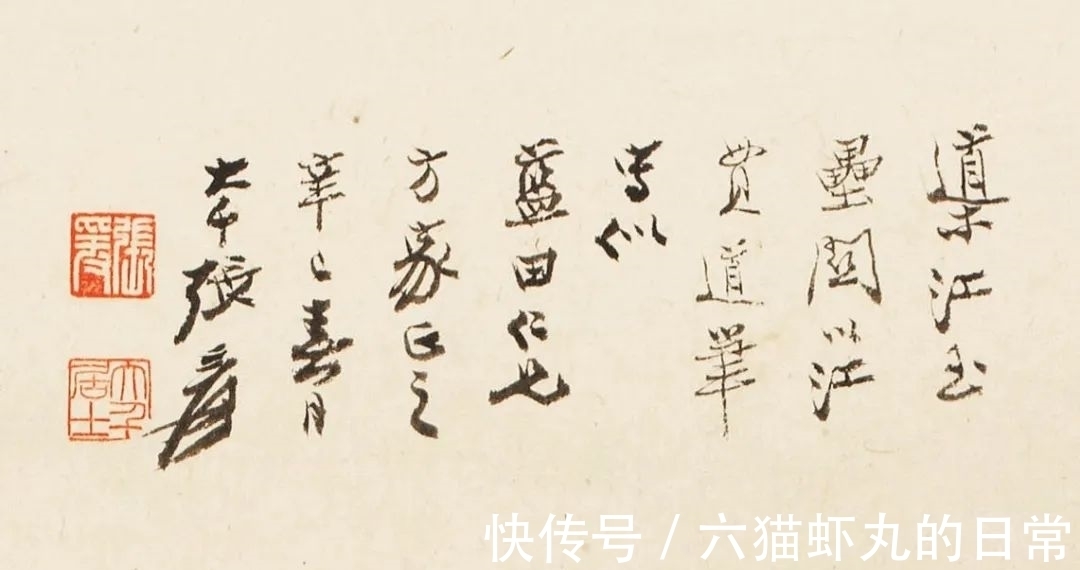 導江玉
壘關以江
貫道筆
寫似
藍田仁兄
方家正之
辛巳春月
大千張爰
張爰
大千居士
快传号 / 六猫虾丸的日常